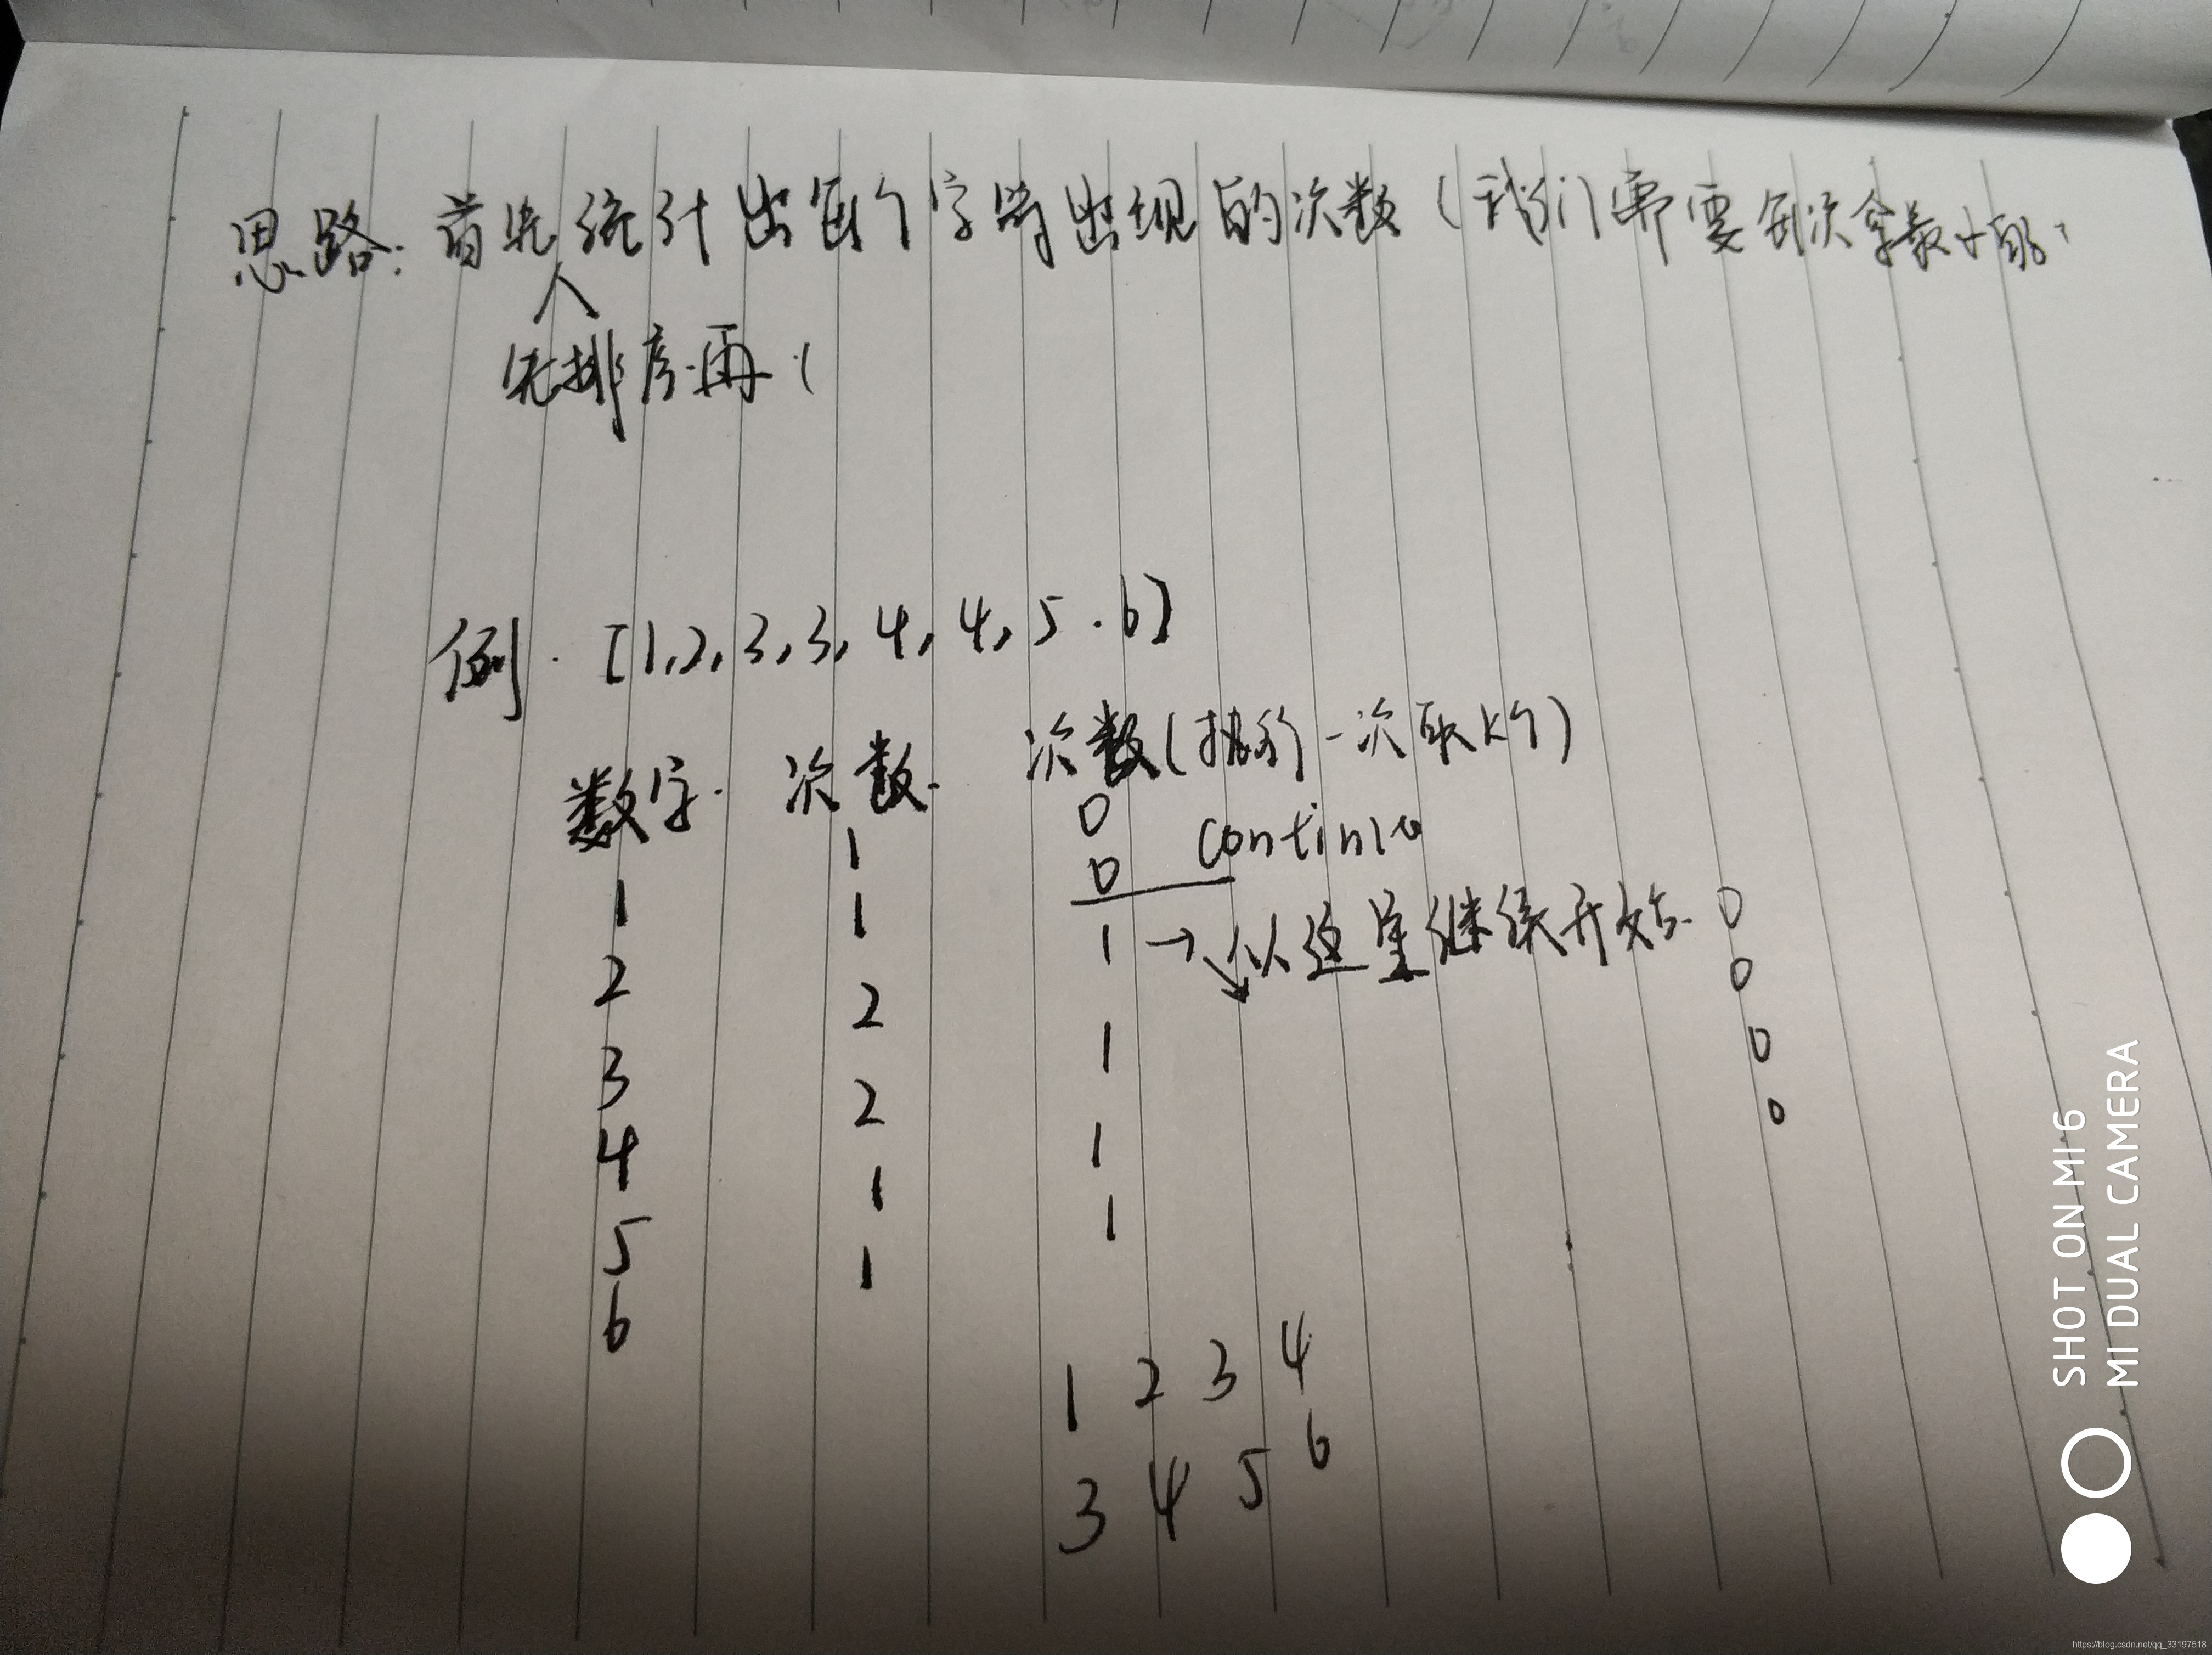 思路: 首先统计出每个字符出现的次数 (我们需要每次拿最小的,
人
先排序再 (
例 . [1,2,3,3,4,4,5.6]
数字. 次数. 次数(执行一次取k个)
1 0 continue
0
1 1 1 → 从这里继续开始. 0
2 2 1 0
3 2 1 0
4 1 1 0
5 1
6
1 2 3 4
3 4 5 6
SHOT ON MI 6
MI DUAL CAMERA
https://blog.csdn.net/qq_33197518